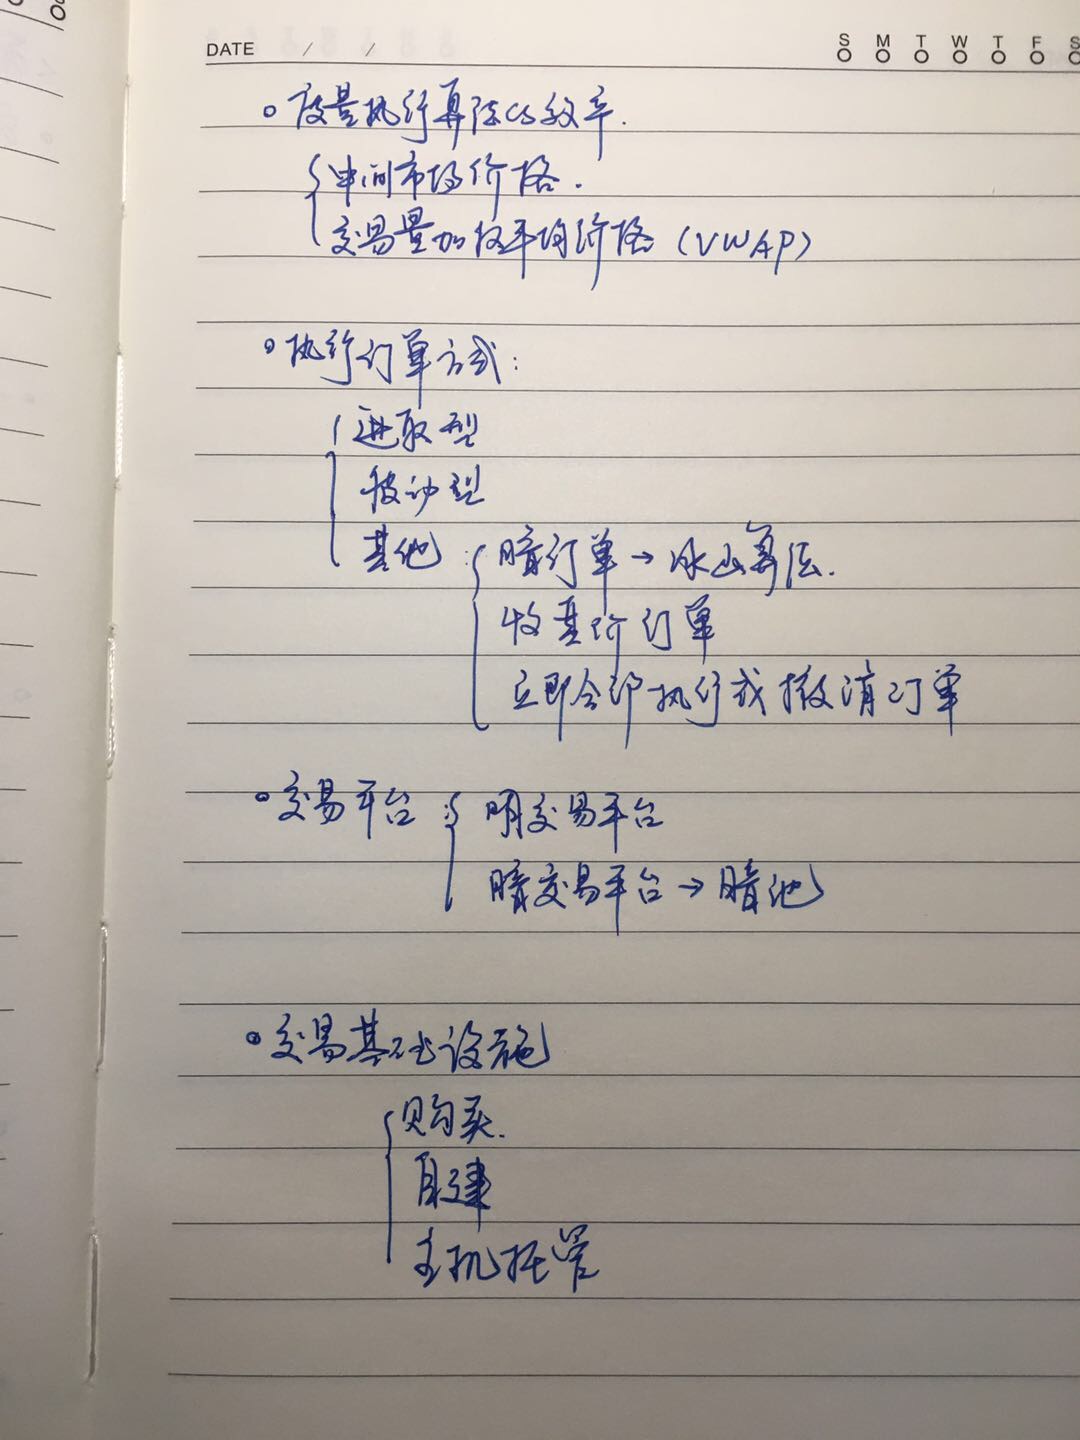 DATE / /
S M T W T F S
度量执行算法的效率.
中间市场价格.
交易量加权平均价格 (VWAP)
执行订单方式:
进取型
被动型
其他: 暗订单→冰山算法.
收盘价订单
立即全部执行或撤消订单
交易平台: 明交易平台
暗交易平台→暗池
交易基础设施
购买.
自建
主机托管